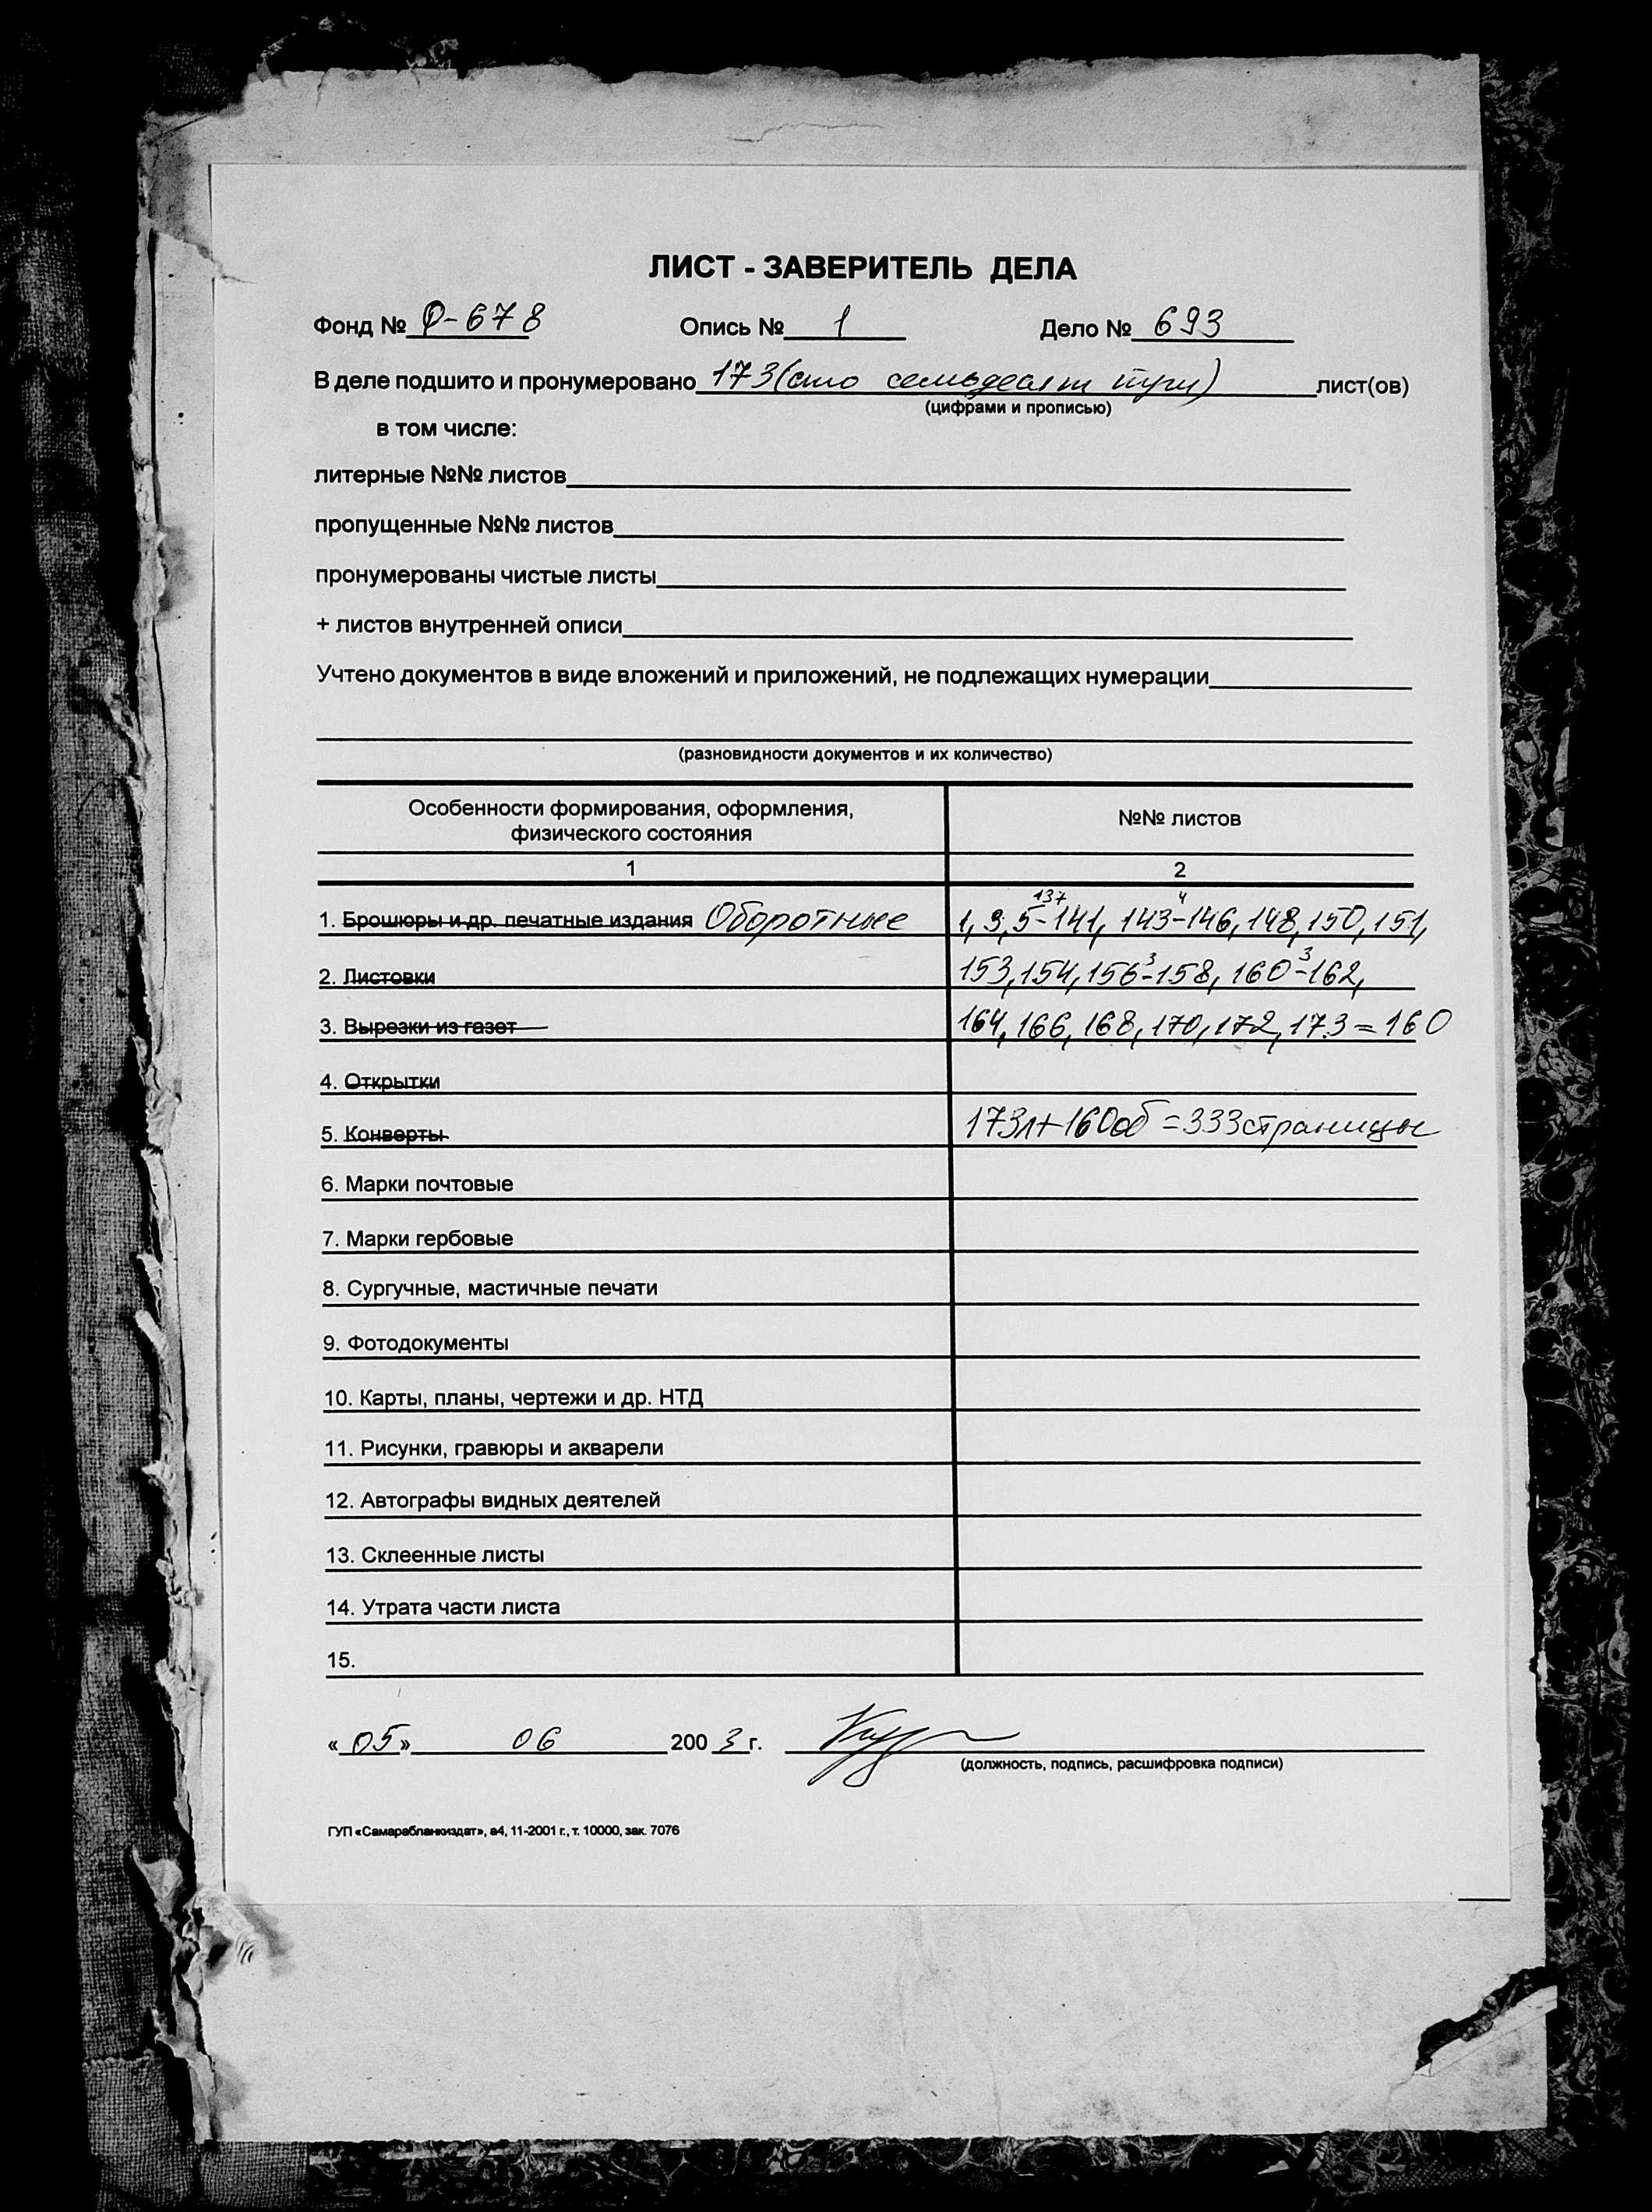 ЛИСТ - ЗАВЕРИТЕЛЬ ДЕЛА
Фонд № Ф-678 Опись № 1 Дело № 693
В деле подшито и пронумеровано 173 (сто семьдесят три) лист(ов)
(цифрами и прописью)
в том числе:
литерные №№ листов
пропущенные №№ листов
пронумерованы чистые листы
+ листов внутренней описи
Учтено документов в виде вложений и приложений, не подлежащих нумерации
(разновидности документов и их количество)
Особенности формирования, оформления,
физического состояния
№№ листов
1 2
137 4
1. Брошюры и др. печатные издания Оборотные 1, 3, 5-141, 143-146, 148, 150, 151,
3 3
2. Листовки 153, 154, 156-158, 160-162,
3. Вырезки из газет 164, 166, 168, 170, 172, 173 = 160
4. Открытки
5. Конверты 173л + 160об = 333 страницы
6. Марки почтовые
7. Марки гербовые
8. Сургучные, мастичные печати
9. Фотодокументы
10. Карты, планы, чертежи и др. НТД
11. Рисунки, гравюры и акварели
12. Автографы видных деятелей
13. Склеенные листы
14. Утрата части листа
15.
« 05 » 06 2003 г.
(должность, подпись, расшифровка подписи)
ГУП «Самарабланкиздат», а4, 11-2001 г., т. 10000, зак. 7076